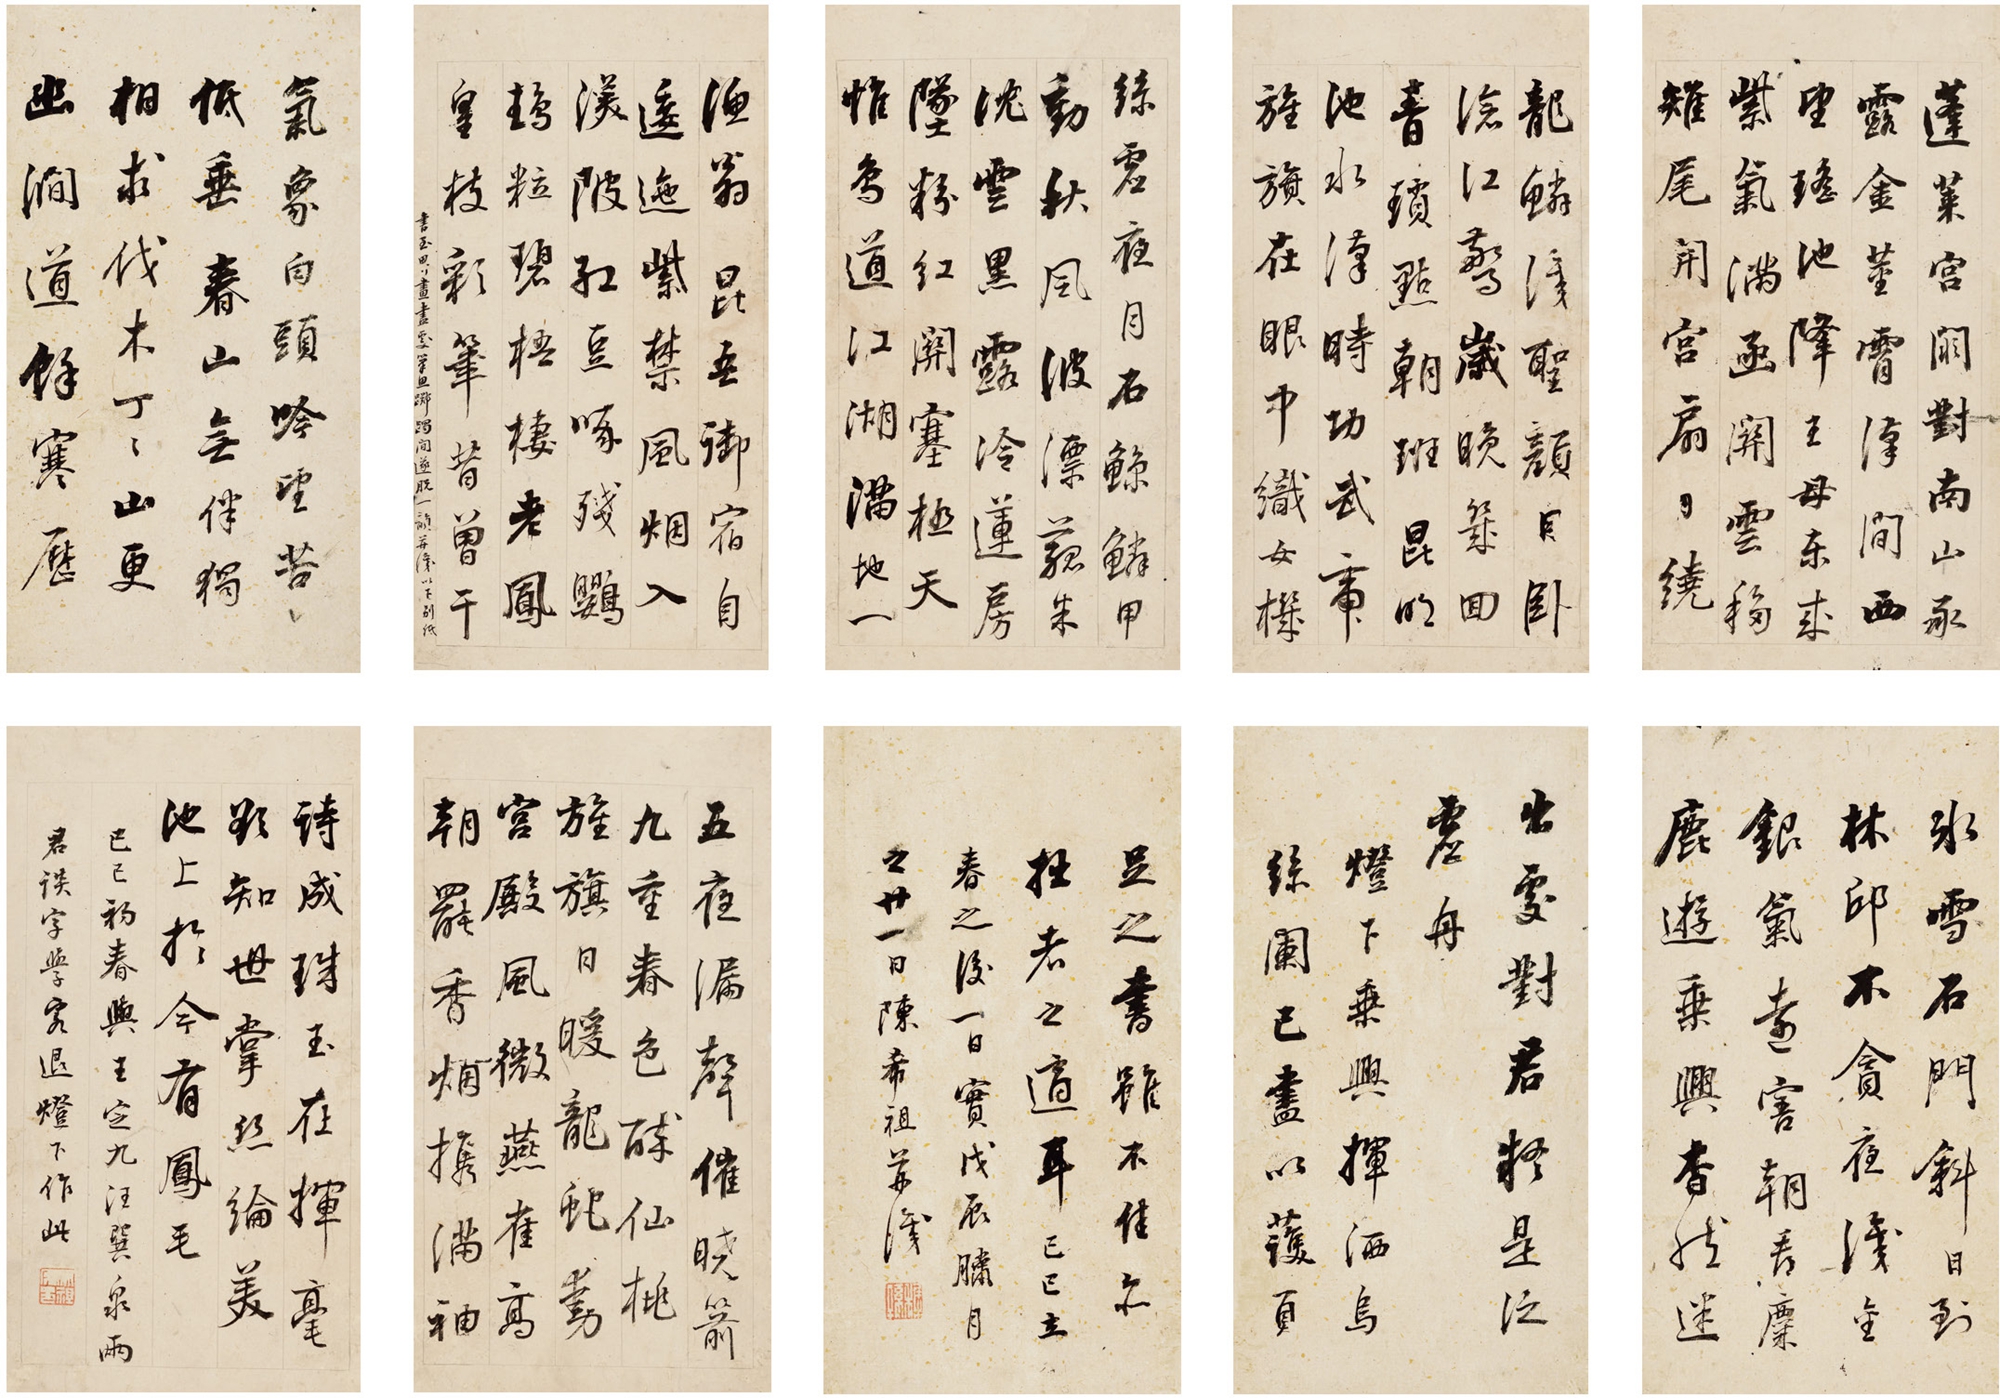 蓬萊宮闕對南山承
露金莖霄漢間西
望瑤池降王母东來
紫氣滿函關雲移
雉尾開宮扇日繞
龍鱗識聖顏卧
滄江驚歲晚幾回
青瑣點朝班昆明
池水漢時功武帝
旌旗在眼中織女機
絲虛夜月石鯨鱗甲
動秋風波漂菰朱
沈雲黑露冷蓮房
墜粉紅關塞極天
惟鳥道江湖滿地一
漁翁昆吾御宿自
逶迤紫禁風烟入
渼陂紅豆啄殘鸚
鵡粒碧梧棲老鳳
皇枝彩筆昔曾干
書至畫盡處筆躑躅間遂脫一韻并識以下別紙
氣象白頭吟望苦
低垂春山無伴獨
相求伐木丁丁山更
幽澗道餘寒歷
冰雪石門斜日到
林邱不貪夜識金
銀氣遠害朝看麋
鹿遊乘興杳然迷
出處對君疑是泛
虛舟
燈下乘興揮洒烏
絲闌已盡以護頁
足之書雖不佳亦
拙者之適耳己巳立
春之後一日實戊辰臘月
之廿一日陳希祖并識
五夜漏聲催曉箭
九重春色醉仙桃
旌旗日暖龍蛇動
宮殿風微燕雀高
朝罷香烟攜滿袖
詩成珠玉在揮毫
欲知世掌絲綸美
池上於今有鳳毛
己巳初春與王定九汪巽泉兩
君談字學客退燈下作此